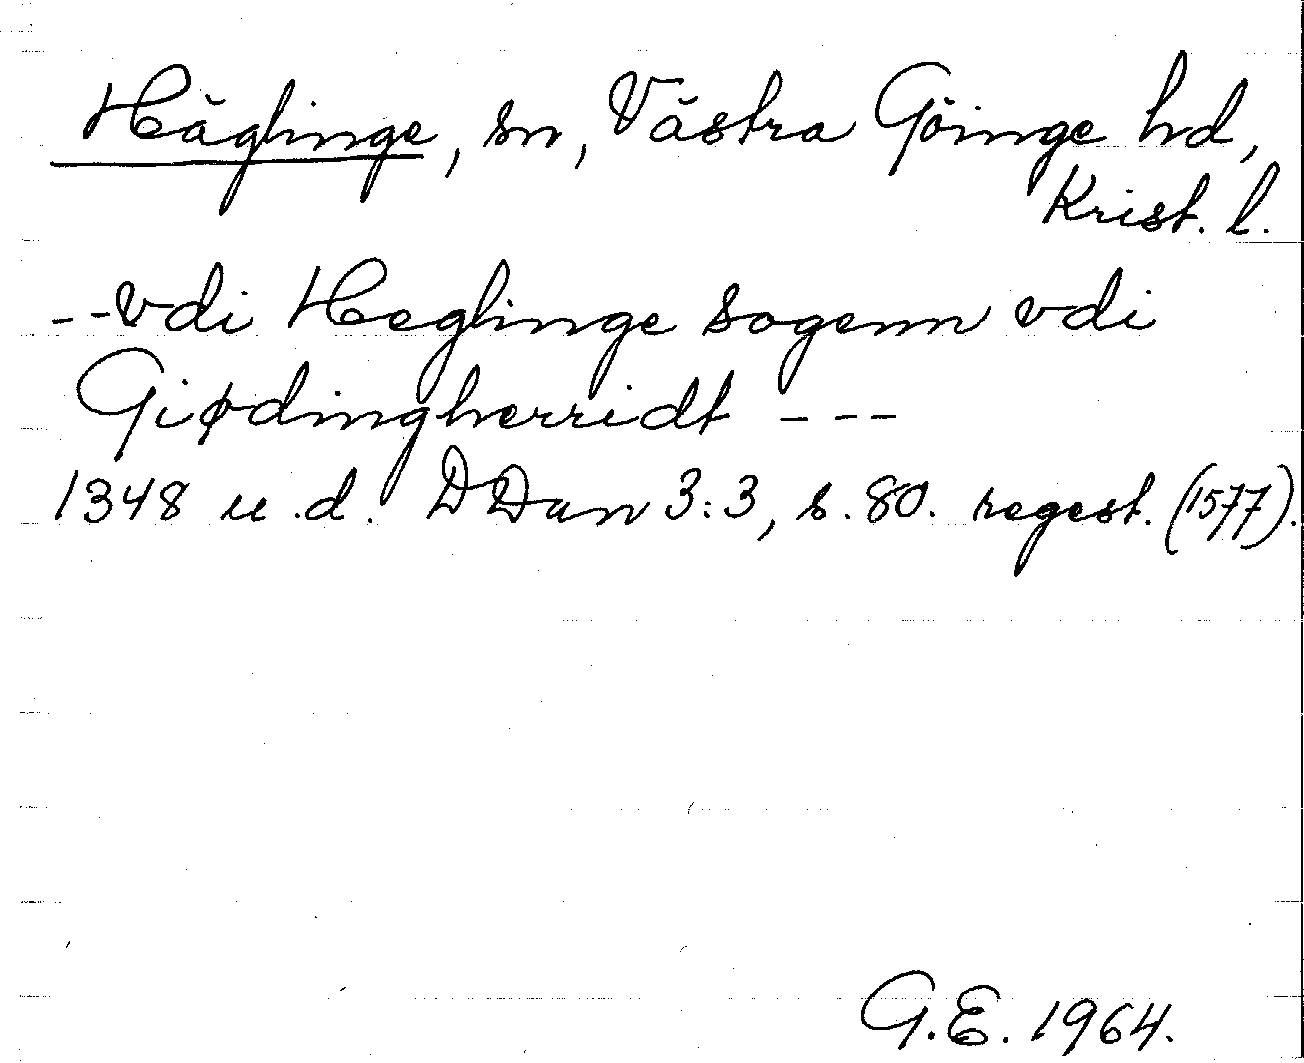 Häglinge, sn, Västra Göinge hd,
Krist. l.
--vdi Heglinge sogenn vdi
Giødingherridt ---
1348 u.d. DDan 3:3, s.80. regest. (1577).
G.E. 1964.